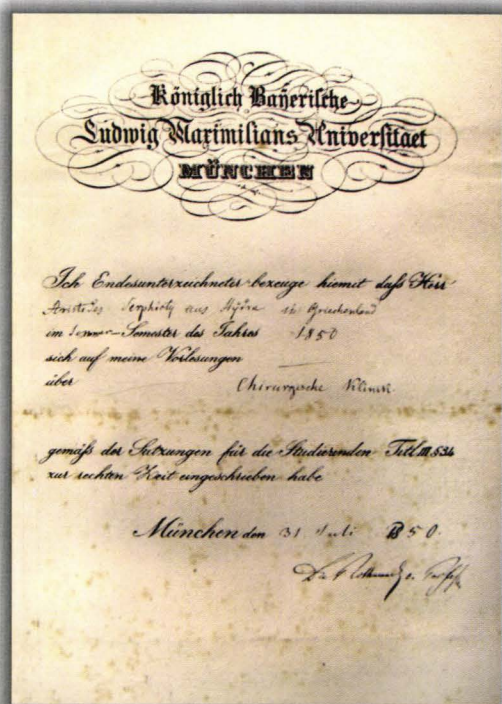 Königlich Bayerische
Ludwig Maximilians Universitaet
MÜNCHEN
Ich Endesunterzeichneter bezeuge hiemit daß Herr
aus Hÿdra in Griechenland
im Sommer-Semester des Jahres 1850
sich auf meine Vorlesungen
über Chirurgische Klinik
gemäß der Satzungen für die Studierenden Titl.III.§34
zur rechten Zeit angeschrieben habe
München den 31 Juli 1850.
Dr